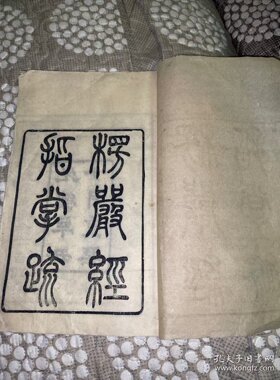 楞嚴經
指掌疏
孔夫子旧书网